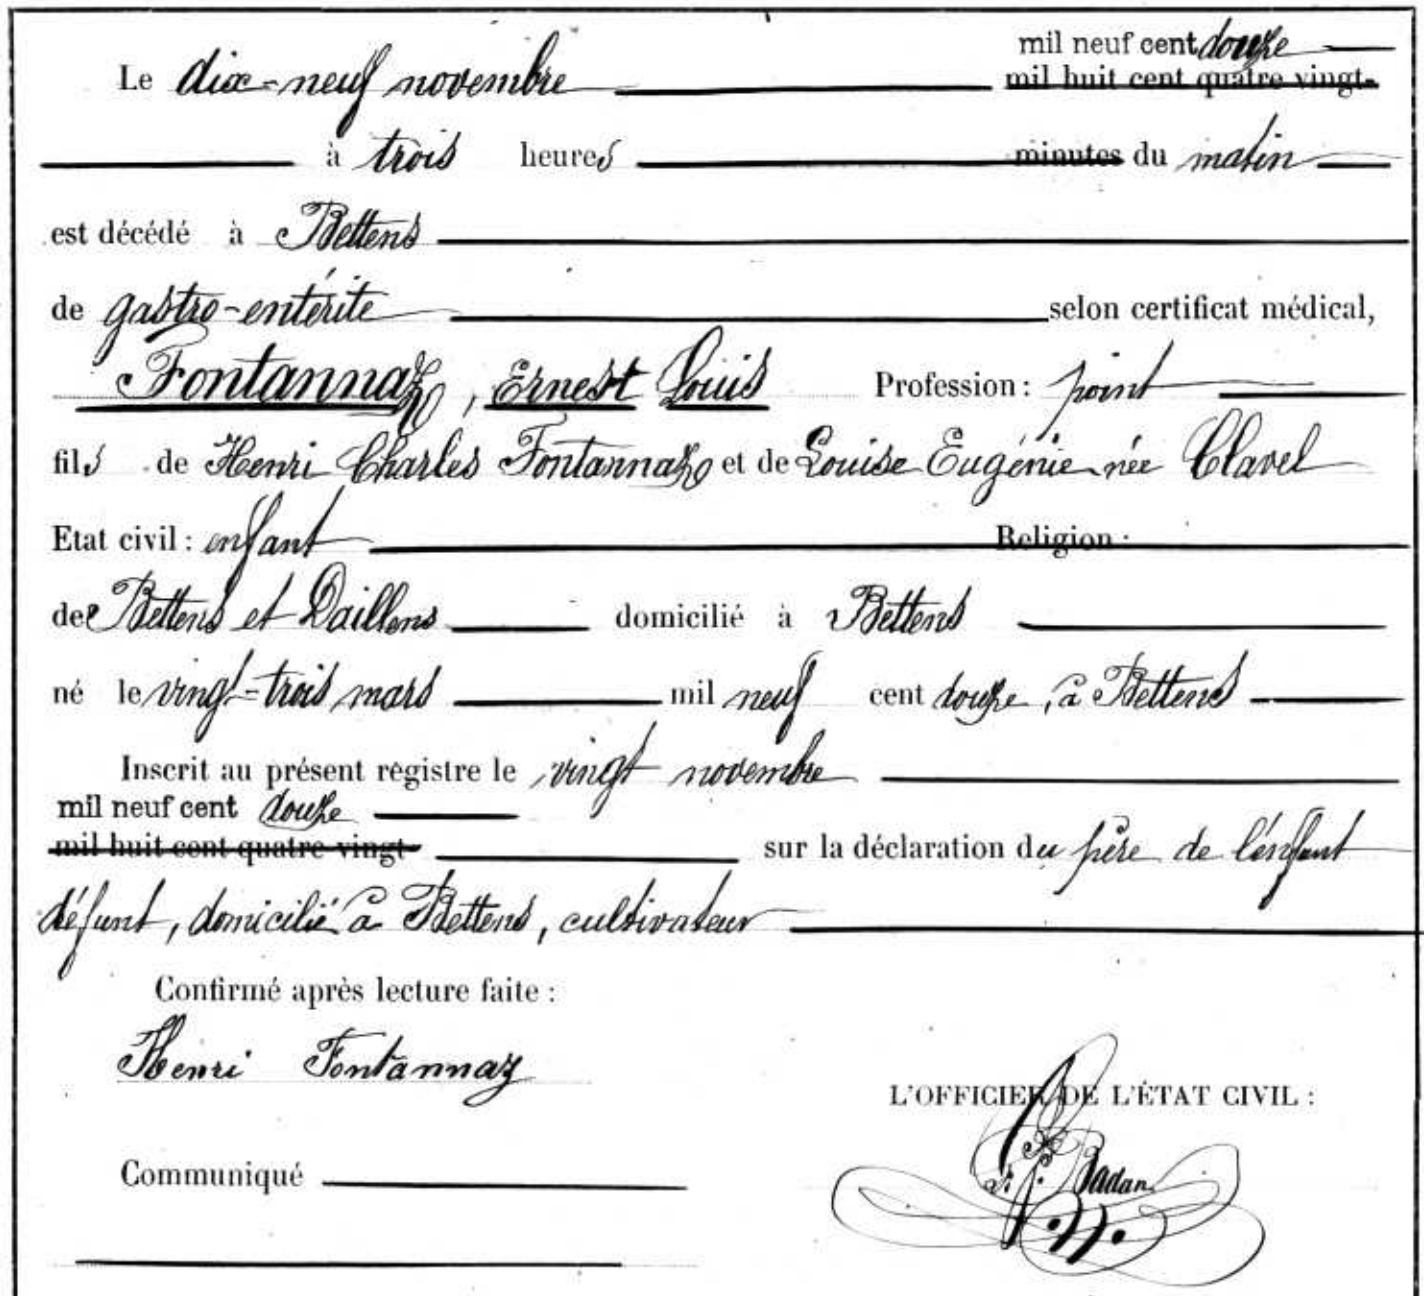 mil neuf cent douze
Le dix-neuf novembre mil huit cent quatre vingt-
à trois heures minutes du matin
est décédé à Bettens
de gastro-entérite selon certificat médical,
Fontannaz, Ernest Louis Profession : point
fils de Henri Charles Fontannaz et de Louise Eugénie née Clavel
Etat civil : enfant Religion :
de Bettens et Daillens domicilié à Bettens
né le vingt-trois mars mil neuf cent douze, à Bettens
Inscrit au présent régistre le vingt novembre
mil neuf cent douze
mil huit cent quatre vingt- sur la déclaration du père de l'enfant
défunt, domicilié à Bettens, cultivateur
Confirmé après lecture faite :
Henri Fontannaz
L'OFFICIER DE L'ÉTAT CIVIL :
Communiqué
Badan